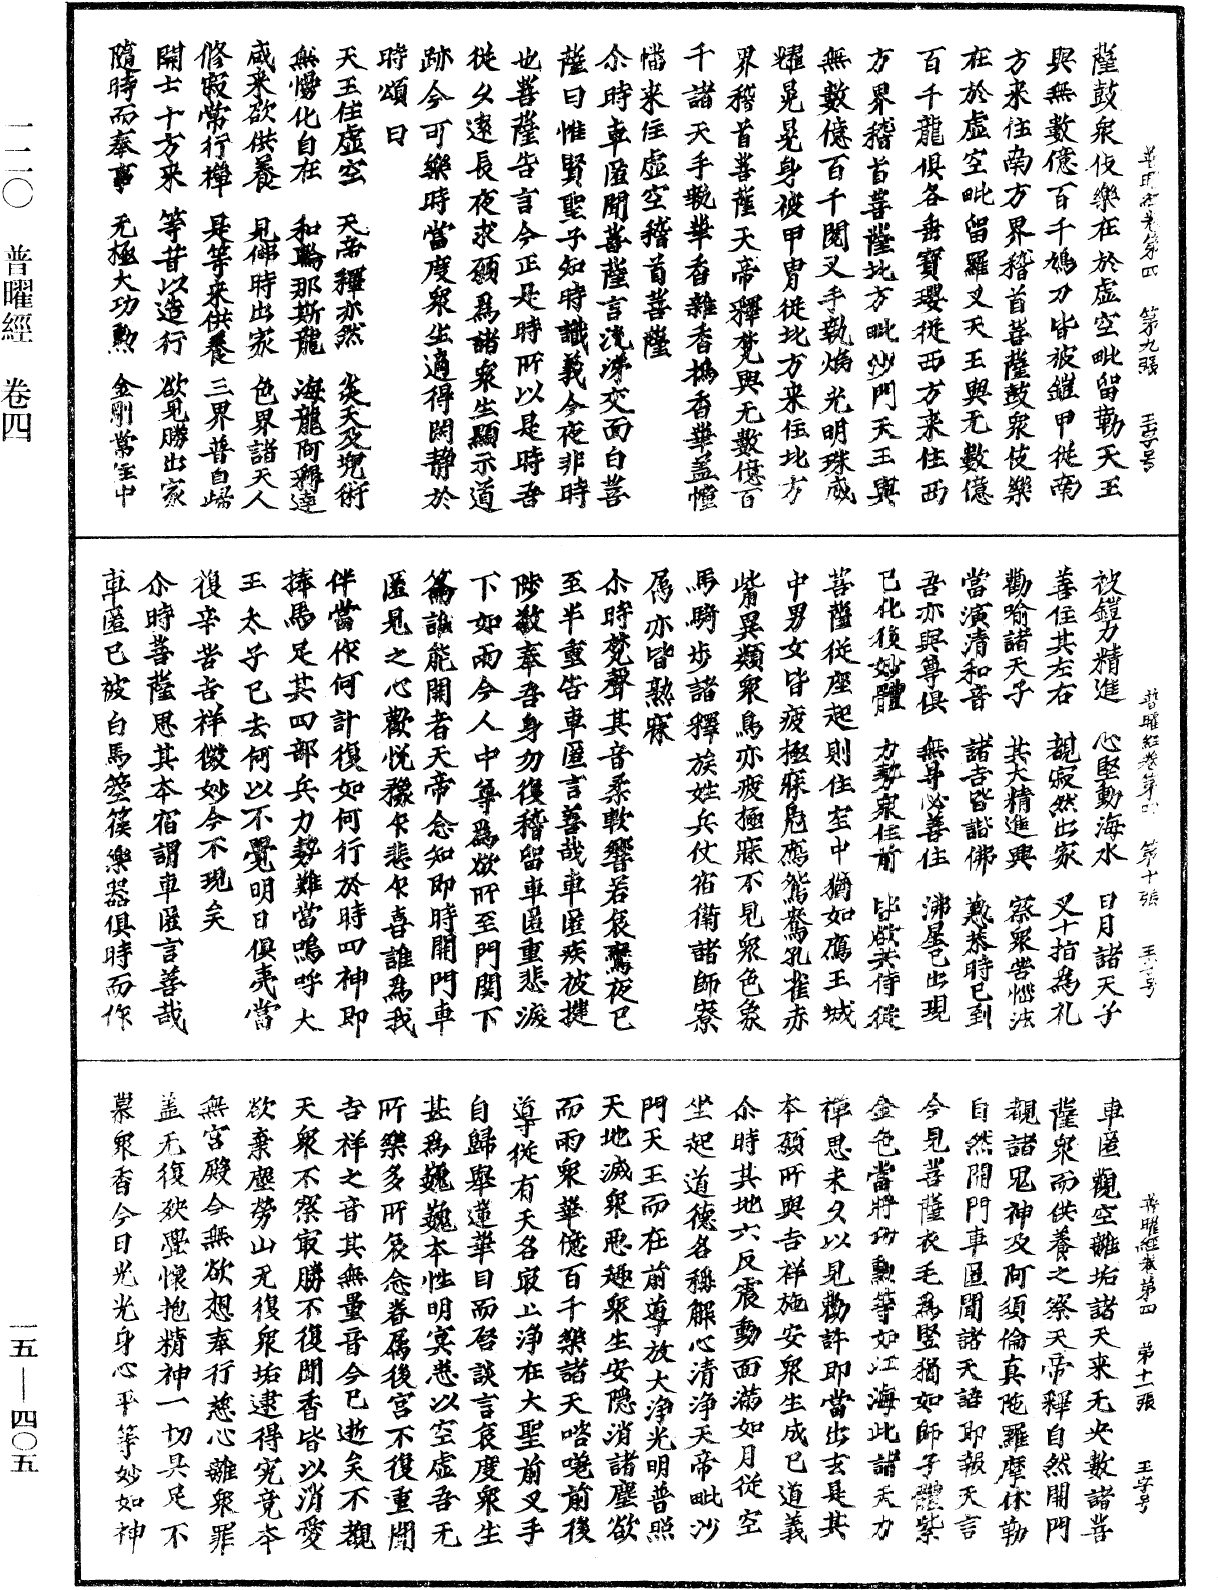 二二〇 普曜經 卷四
一五—四〇五
普曜經卷第四 第九張 王字号
薩鼓衆伎樂在於虛空毗留勒天王
與無數億百千鳩力皆被鎧甲從南
方来住南方界稽首菩薩鼓衆伎樂
在於虛空毗留羅叉天王與无數億
百千龍俱各垂寶瓔從西方来住西
方界稽首菩薩北方毗沙門天王與
無數億百千閱叉手執焰光明珠威
耀晃晃身被甲胄從北方来住北方
界稽首菩薩天帝釋梵與无數億百
千諸天手執華香雜香擣香華盖幢
幡来住虛空稽首菩薩
尒時車匿聞菩薩言洟涕交面白菩
薩曰惟賢聖子知時識義今夜非時
也菩薩告言今正是時所以是時吾
從久遠長夜求願爲諸衆生顯示道
跡今可樂時當度衆生適得閑静於
時頌曰
天王住虛空 天帝釋亦然 炎天及兜術
無憍化自在 和輪那斯龍 海龍阿耨達
咸来欲供養 見佛時出家 色界諸天人
修寂常行禅 是等来供養 三界普自歸
開士十方来 等昔以造行 欲見勝出家
隨時而奉事 无極大功勲 金剛常住中
普曜經卷第四 第十張 王字号
被鎧力精進 心堅動海水 日月諸天子
善住其左右 覩寂然出家 叉十指爲礼
勸喻諸天子 其大精進興 察衆苦惱法
當演清和音 諸吉皆諧佛 慇恭時已到
吾亦與尊俱 無身必善住 沸星已出現
已化復妙體 力勢衆住前 皆欲共侍從
菩薩從座起則住空中猶如鴈王城
中男女皆疲極寐鳧鴈鴛鴦孔雀赤
觜異類衆鳥亦疲極寐不見衆色象
馬騎步諸釋族姓兵仗宿衛諸師寮
属亦皆熟寐
尒時梵聲其音柔軟響若哀鸞夜已
至半重告車匿言善哉車匿疾被揵
陟敬奉吾身勿復稽留車匿重悲淚
下如雨今人中尊爲欲所至門關下
籥誰能開者天帝念知即時開門車
匿見之心歡悦豫乍悲乍喜誰爲我
伴當作何計復如何行於時四神即
捧馬足其四部兵力勢難當嗚呼大
王太子已去何以不覺明日俱夷當
復辛苦吉祥微妙今不現矣
尒時菩薩思其本宿謂車匿言善哉
車匿已被白馬箜篌樂器俱時而作
普曜經卷第四 第十一張 王字号
車匿觀空離垢諸天来无央數諸菩
薩衆而供養之察天帝釋自然開門
覩諸鬼神及阿須倫真陁羅摩休勒
自然開門車匿聞諸天語即報天言
今見菩薩衣毛爲竪猶如師子體紫
金色當將功勲等如江海此諸天力
禅思未久以見勸許即當出去是其
本願所興吉祥施安衆生成已道義
尒時其地六反震動面滿如月從空
坐起道德名稱解心清淨天帝毗沙
門天王而在前導放大淨光明普照
天地滅衆惡趣衆生安隱消諸塵欲
而雨衆華億百千樂諸天咨嗟前後
導從有天名寂上淨在大聖前叉手
自歸舉蓮華目而啓談言哀度衆生
甚爲巍巍本性明寞悉以空虛吾无
所樂多所哀念眷属後宫不復重聞
吉祥之音其無量音今已逝矣不覩
天衆不察寂勝不復聞香皆以消愛
欲棄塵勞山无復衆垢逮得究竟本
無宫殿今無欲想奉行慈心離衆罪
盖无復殃舋懷抱精神一切具足不
慕衆香今日光光身心平等妙如神